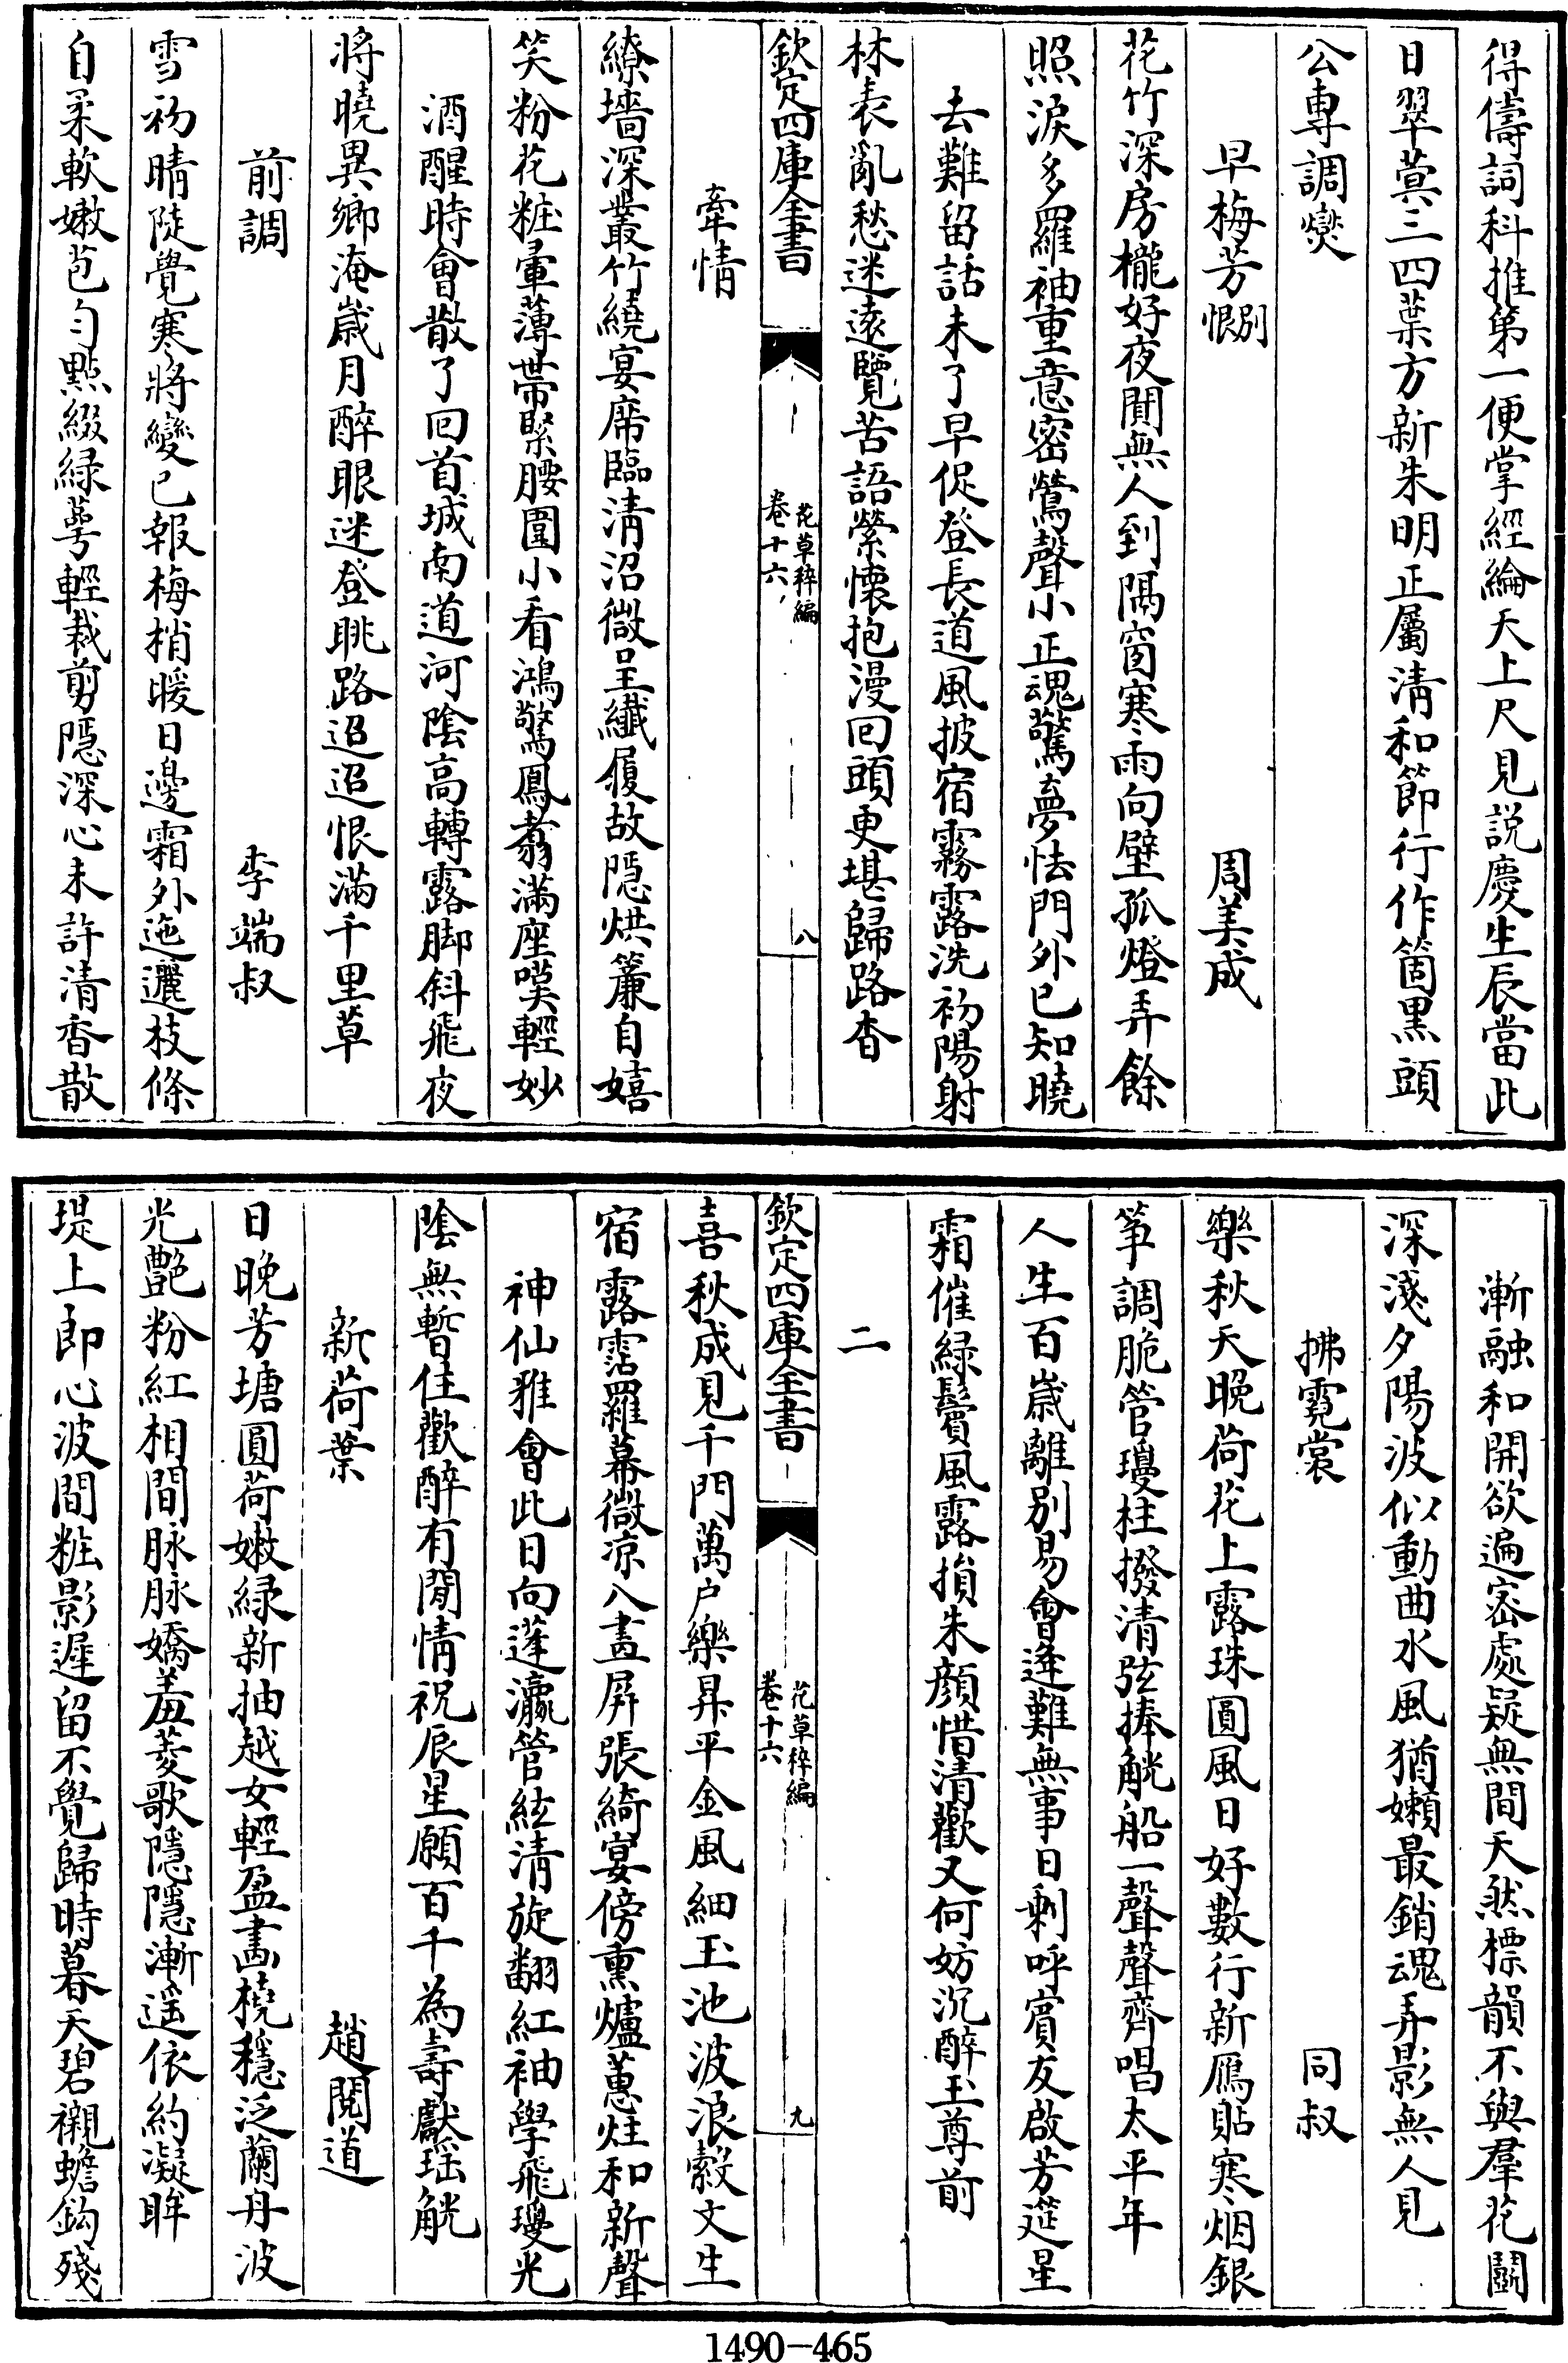 得儔詞科推第一便掌經綸天上尺見説慶生辰當此
日翠蓂三四葉方新朱明正屬清和節行作箇黒頭
公專調爕
早梅芳別恨 周美成
花竹深房櫳好夜閴無人到隔窗寒雨向壁孤燈弄餘
照淚多羅袖重意密鶯聲小正魂驚夢怯門外已知曉
去難留話未了早促登長道風披宿霧露洗初陽射
林表亂愁迷逺覽苦語縈懐抱漫回頭更堪歸路杳
欽定四庫全書
花草稡編
卷十六
八
牽情
繚墻深叢竹繞宴席臨清沼微呈纎履故隠烘簾自嬉
笑粉花粧暈薄帶緊腰圍小看鴻驚鳳翥滿座嘆輕妙
酒醒時會散了回首城南道河隂高轉露脚斜飛夜
將曉異鄉淹歳月醉眼迷登眺路迢迢恨滿千里草
前調 李端叔
雪初晴陡覺寒將變已報梅梢暖日邊霜外迤邐枝條
自柔軟嫩苞勻㸃綴緑萼輕裁剪隠深心未許清香散
漸融和開欲遍密處疑無間天然標韻不與羣花鬭
深淺夕陽波似動曲水風猶嬾最銷魂弄影無人見
拂霓裳 同叔
樂秋天晚荷花上露珠圓風日好數行新鴈貼寒烟銀
筝調脆管瓊柱撥清弦捧觥船一聲聲齊唱太平年
人生百歳離别易會逢難無事日剩呼賔友啟芳筵星
霜催緑鬢風露損朱顔惜清歡又何妨沉醉玉尊前
二
欽定四庫全書
花草稡編
卷十六
九
喜秋成見千門萬户樂昇平金風細玉池波浪縠文生
宿露霑羅幕微凉入畵屏張綺宴傍熏爐蕙炷和新聲
神仙雅會此日向蓬瀛管絃清旋翻紅袖學飛瓊光
隂無暫住歡醉有閒情祝辰星願百千為壽獻瑶觥
新荷葉 趙閱道
日晚芳塘圓荷嫩緑新抽越女輕盈畵橈穩泛蘭舟波
光艷粉紅相間脉脉嬌羞菱歌隱隱漸遥依約凝眸
堤上即心波間粧影遲留不覺歸時暮天碧襯蟾鈎殘
1490-465